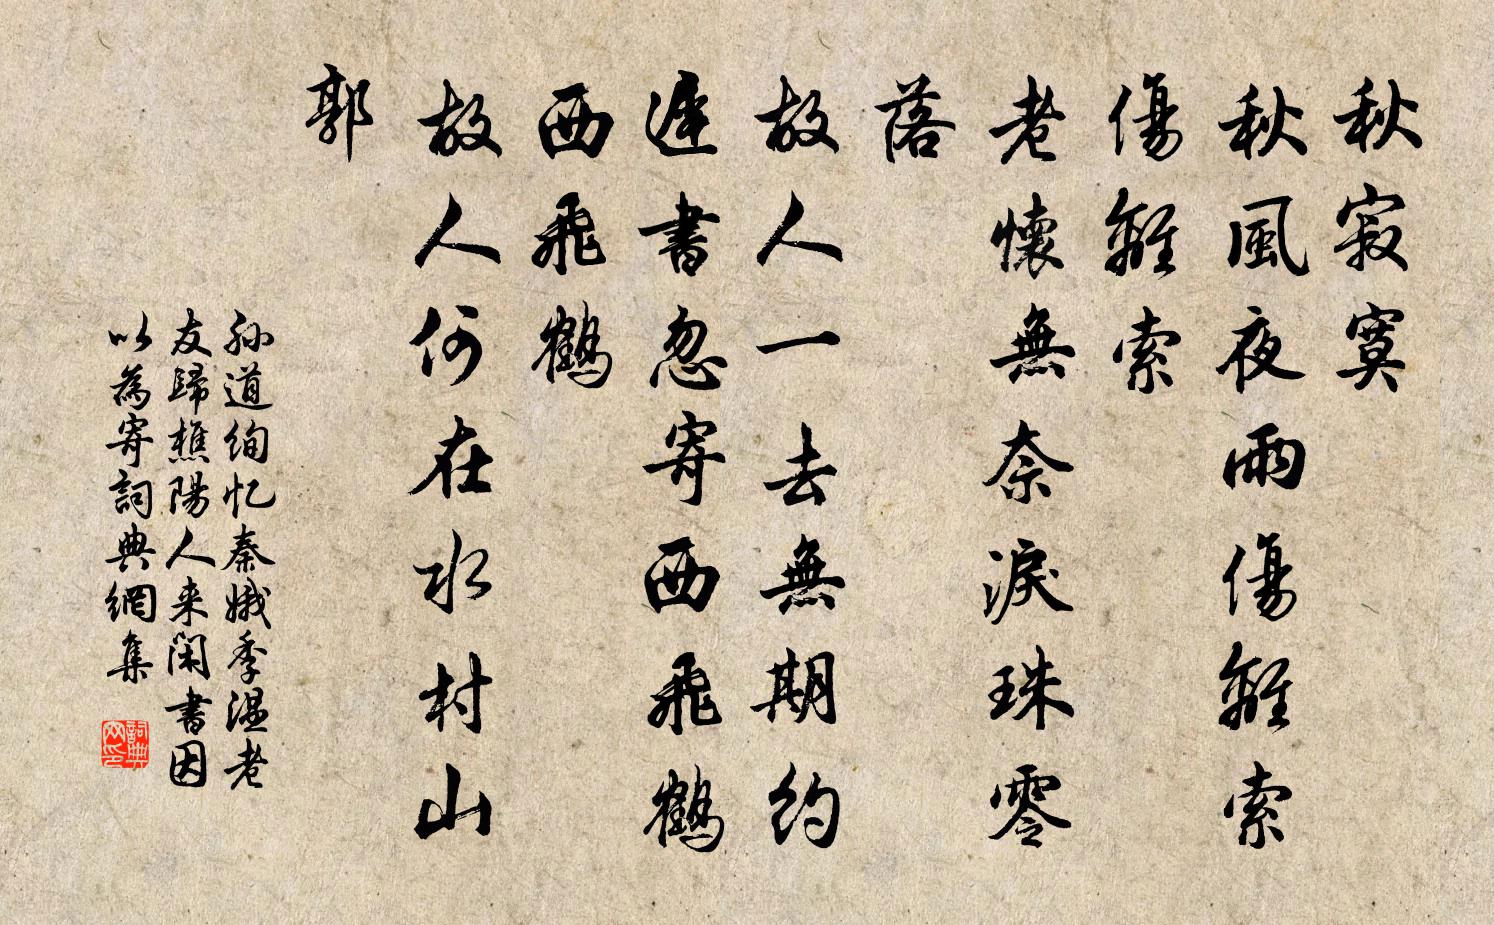 秋寂寞
秋風夜雨傷離索
傷離索
老懷無奈淚珠零
落
故人一去無期約
遲書忽寄西飛鶴
西飛鶴
故人何在水村山
郭
孫道絢忆秦娥季温老
友歸樵陽人来閑書因
以為寄詞典網集
詞典
网印